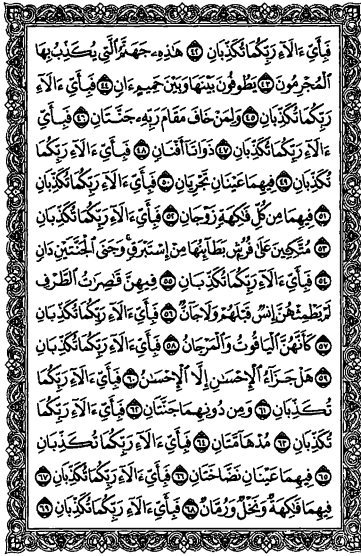 فَبِأَىِّ ءَالَآءِ رَبِّكُمَا تُكَذِّبَانِ ٤٢ هَٰذِهِۦ جَهَنَّمُ ٱلَّتِى يُكَذِّبُ بِهَا
ٱلْمُجْرِمُونَ ٤٣ يَطُوفُونَ بَيْنَهَا وَبَيْنَ حَمِيمٍ ءَانٍ ٤٤ فَبِأَىِّ ءَالَآءِ
رَبِّكُمَا تُكَذِّبَانِ ٤٥ وَلِمَنْ خَافَ مَقَامَ رَبِّهِۦ جَنَّتَانِ ٤٦ فَبِأَىِّ
ءَالَآءِ رَبِّكُمَا تُكَذِّبَانِ ٤٧ ذَوَاتَآ أَفْنَانٍ ٤٨ فَبِأَىِّ ءَالَآءِ رَبِّكُمَا
تُكَذِّبَانِ ٤٩ فِيهِمَا عَيْنَانِ تَجْرِيَانِ ٥٠ فَبِأَىِّ ءَالَآءِ رَبِّكُمَا تُكَذِّبَانِ
٥١ فِيهِمَا مِن كُلِّ فَٰكِهَةٍ زَوْجَانِ ٥٢ فَبِأَىِّ ءَالَآءِ رَبِّكُمَا تُكَذِّبَانِ
٥٣ مُتَّكِـِٔينَ عَلَىٰ فُرُشٍۭ بَطَآئِنُهَا مِنْ إِسْتَبْرَقٍ ۚ وَجَنَى ٱلْجَنَّتَيْنِ دَانٍ
٥٤ فَبِأَىِّ ءَالَآءِ رَبِّكُمَا تُكَذِّبَانِ ٥٥ فِيهِنَّ قَٰصِرَٰتُ ٱلطَّرْفِ
لَمْ يَطْمِثْهُنَّ إِنسٌ قَبْلَهُمْ وَلَا جَآنٌّ ٥٦ فَبِأَىِّ ءَالَآءِ رَبِّكُمَا تُكَذِّبَانِ
٥٧ كَأَنَّهُنَّ ٱلْيَاقُوتُ وَٱلْمَرْجَانُ ٥٨ فَبِأَىِّ ءَالَآءِ رَبِّكُمَا تُكَذِّبَانِ
٥٩ هَلْ جَزَآءُ ٱلْإِحْسَٰنِ إِلَّا ٱلْإِحْسَٰنُ ٦٠ فَبِأَىِّ ءَالَآءِ رَبِّكُمَا
تُكَذِّبَانِ ٦١ وَمِن دُونِهِمَا جَنَّتَانِ ٦٢ فَبِأَىِّ ءَالَآءِ رَبِّكُمَا
تُكَذِّبَانِ ٦٣ مُدْهَآمَّتَانِ ٦٤ فَبِأَىِّ ءَالَآءِ رَبِّكُمَا تُكَذِّبَانِ
٦٥ فِيهِمَا عَيْنَانِ نَضَّاخَتَانِ ٦٦ فَبِأَىِّ ءَالَآءِ رَبِّكُمَا تُكَذِّبَانِ ٦٧
فِيهِمَا فَٰكِهَةٌ وَنَخْلٌ وَرُمَّانٌ ٦٨ فَبِأَىِّ ءَالَآءِ رَبِّكُمَا تُكَذِّبَانِ ٦٩